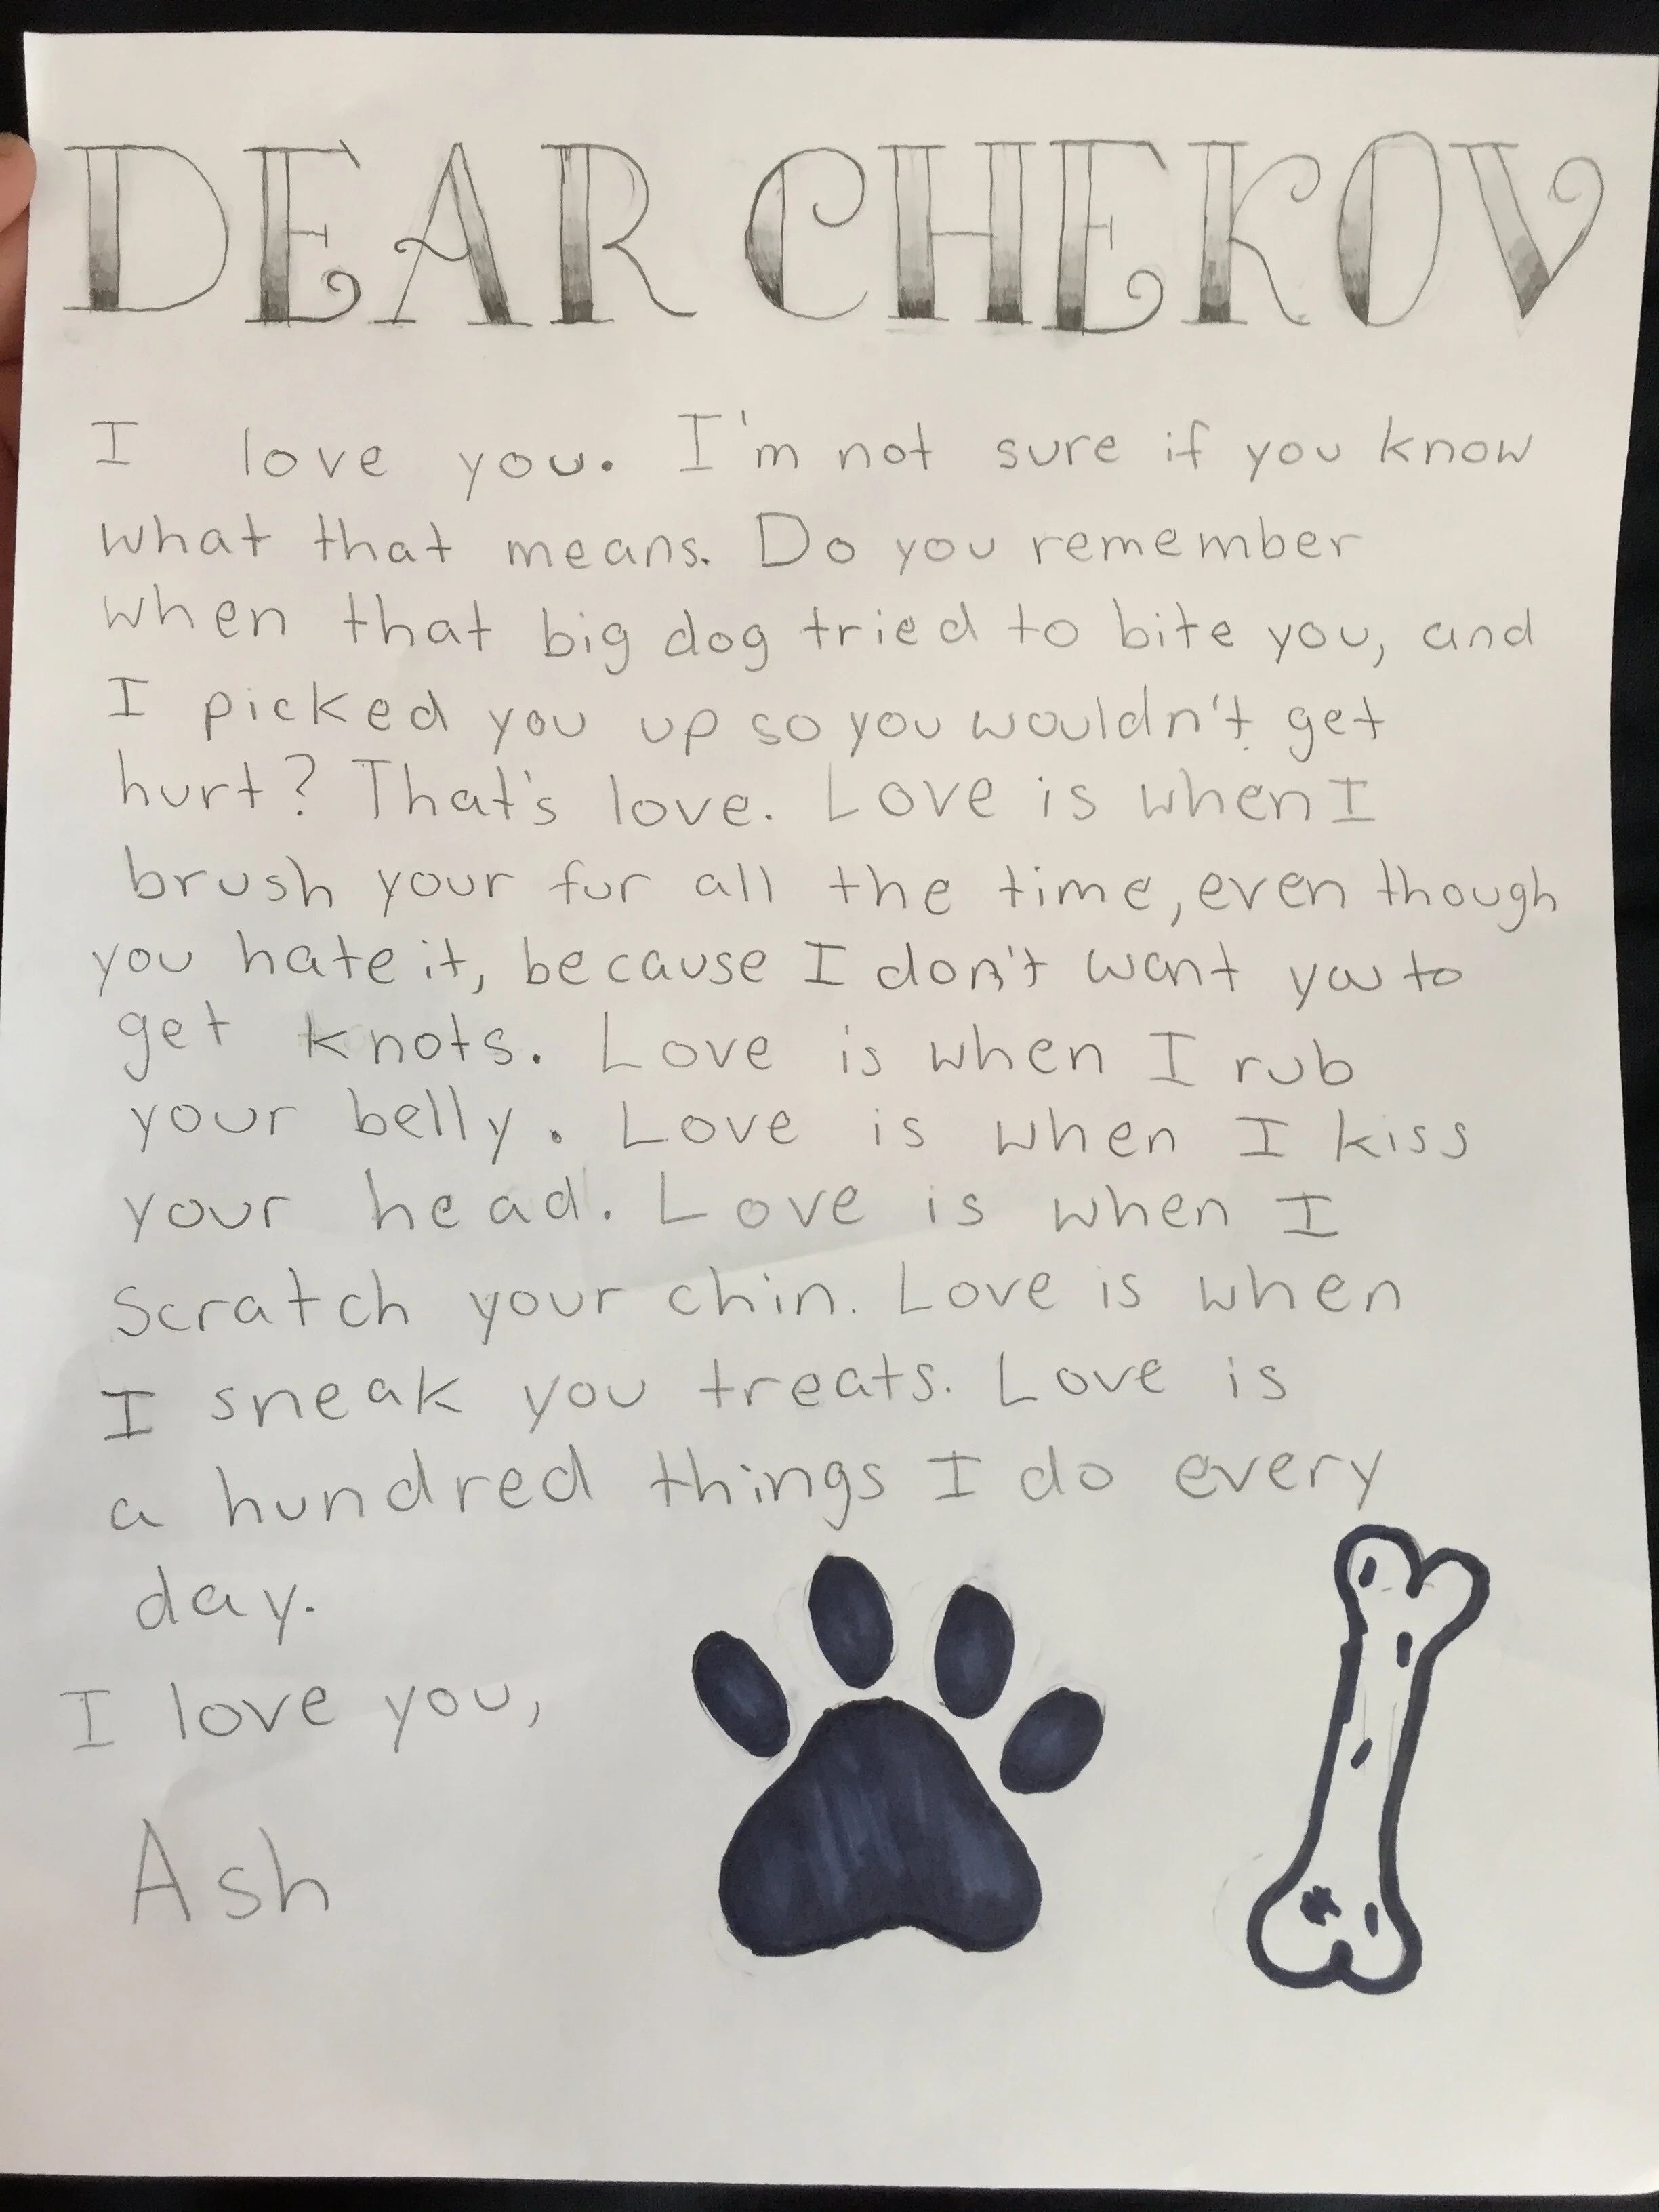 DEAR CHEKOV
I love you. I'm not sure if you know
what that means. Do you remember
when that big dog tried to bite you, and
I picked you up so you wouldn't get
hurt? That's love. Love is when I
brush your fur all the time, even though
you hate it, because I don't want you to
get knots. Love is when I rub
your belly. Love is when I kiss
your head. Love is when I
scratch your chin. Love is when
I sneak you treats. Love is
a hundred things I do every
day.
I love you,
Ash